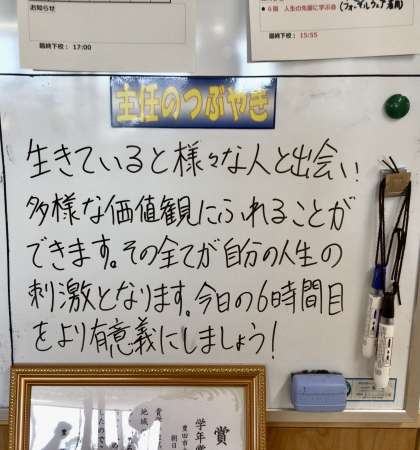 お知らせ
最終下校：17:00
6限 人生の先輩に学ぶ会
最終下校：15:55
主任のつぶやき
生きていると様々な人と出会い、
多様な価値観にふれることが
できます。その全てが自分の人生の
刺激となります。今日の6時間目
をより有意義にしましょう！
賞
学年賞